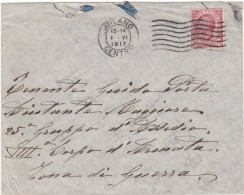 MILANO
1 - VI
1917
CENTRO
Tenente Guido Porta
Aiutante Maggiore
25. Gruppo d'Assedio
VIII Corpo d'Armata
Zona di Guerra.